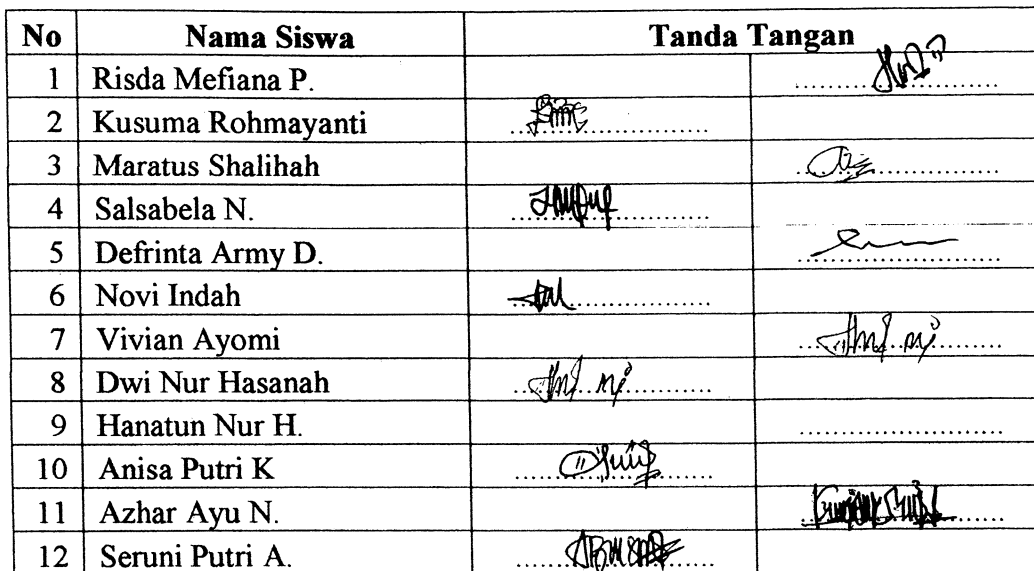 No Nama Siswa Tanda Tangan
1 Risda Mefiana P.
2 Kusuma Rohmayanti
3 Maratus Shalihah
4 Salsabela N.
5 Defrinta Army D.
6 Novi Indah
7 Vivian Ayomi
8 Dwi Nur Hasanah
9 Hanatun Nur H.
10 Anisa Putri K
11 Azhar Ayu N.
12 Seruni Putri A.